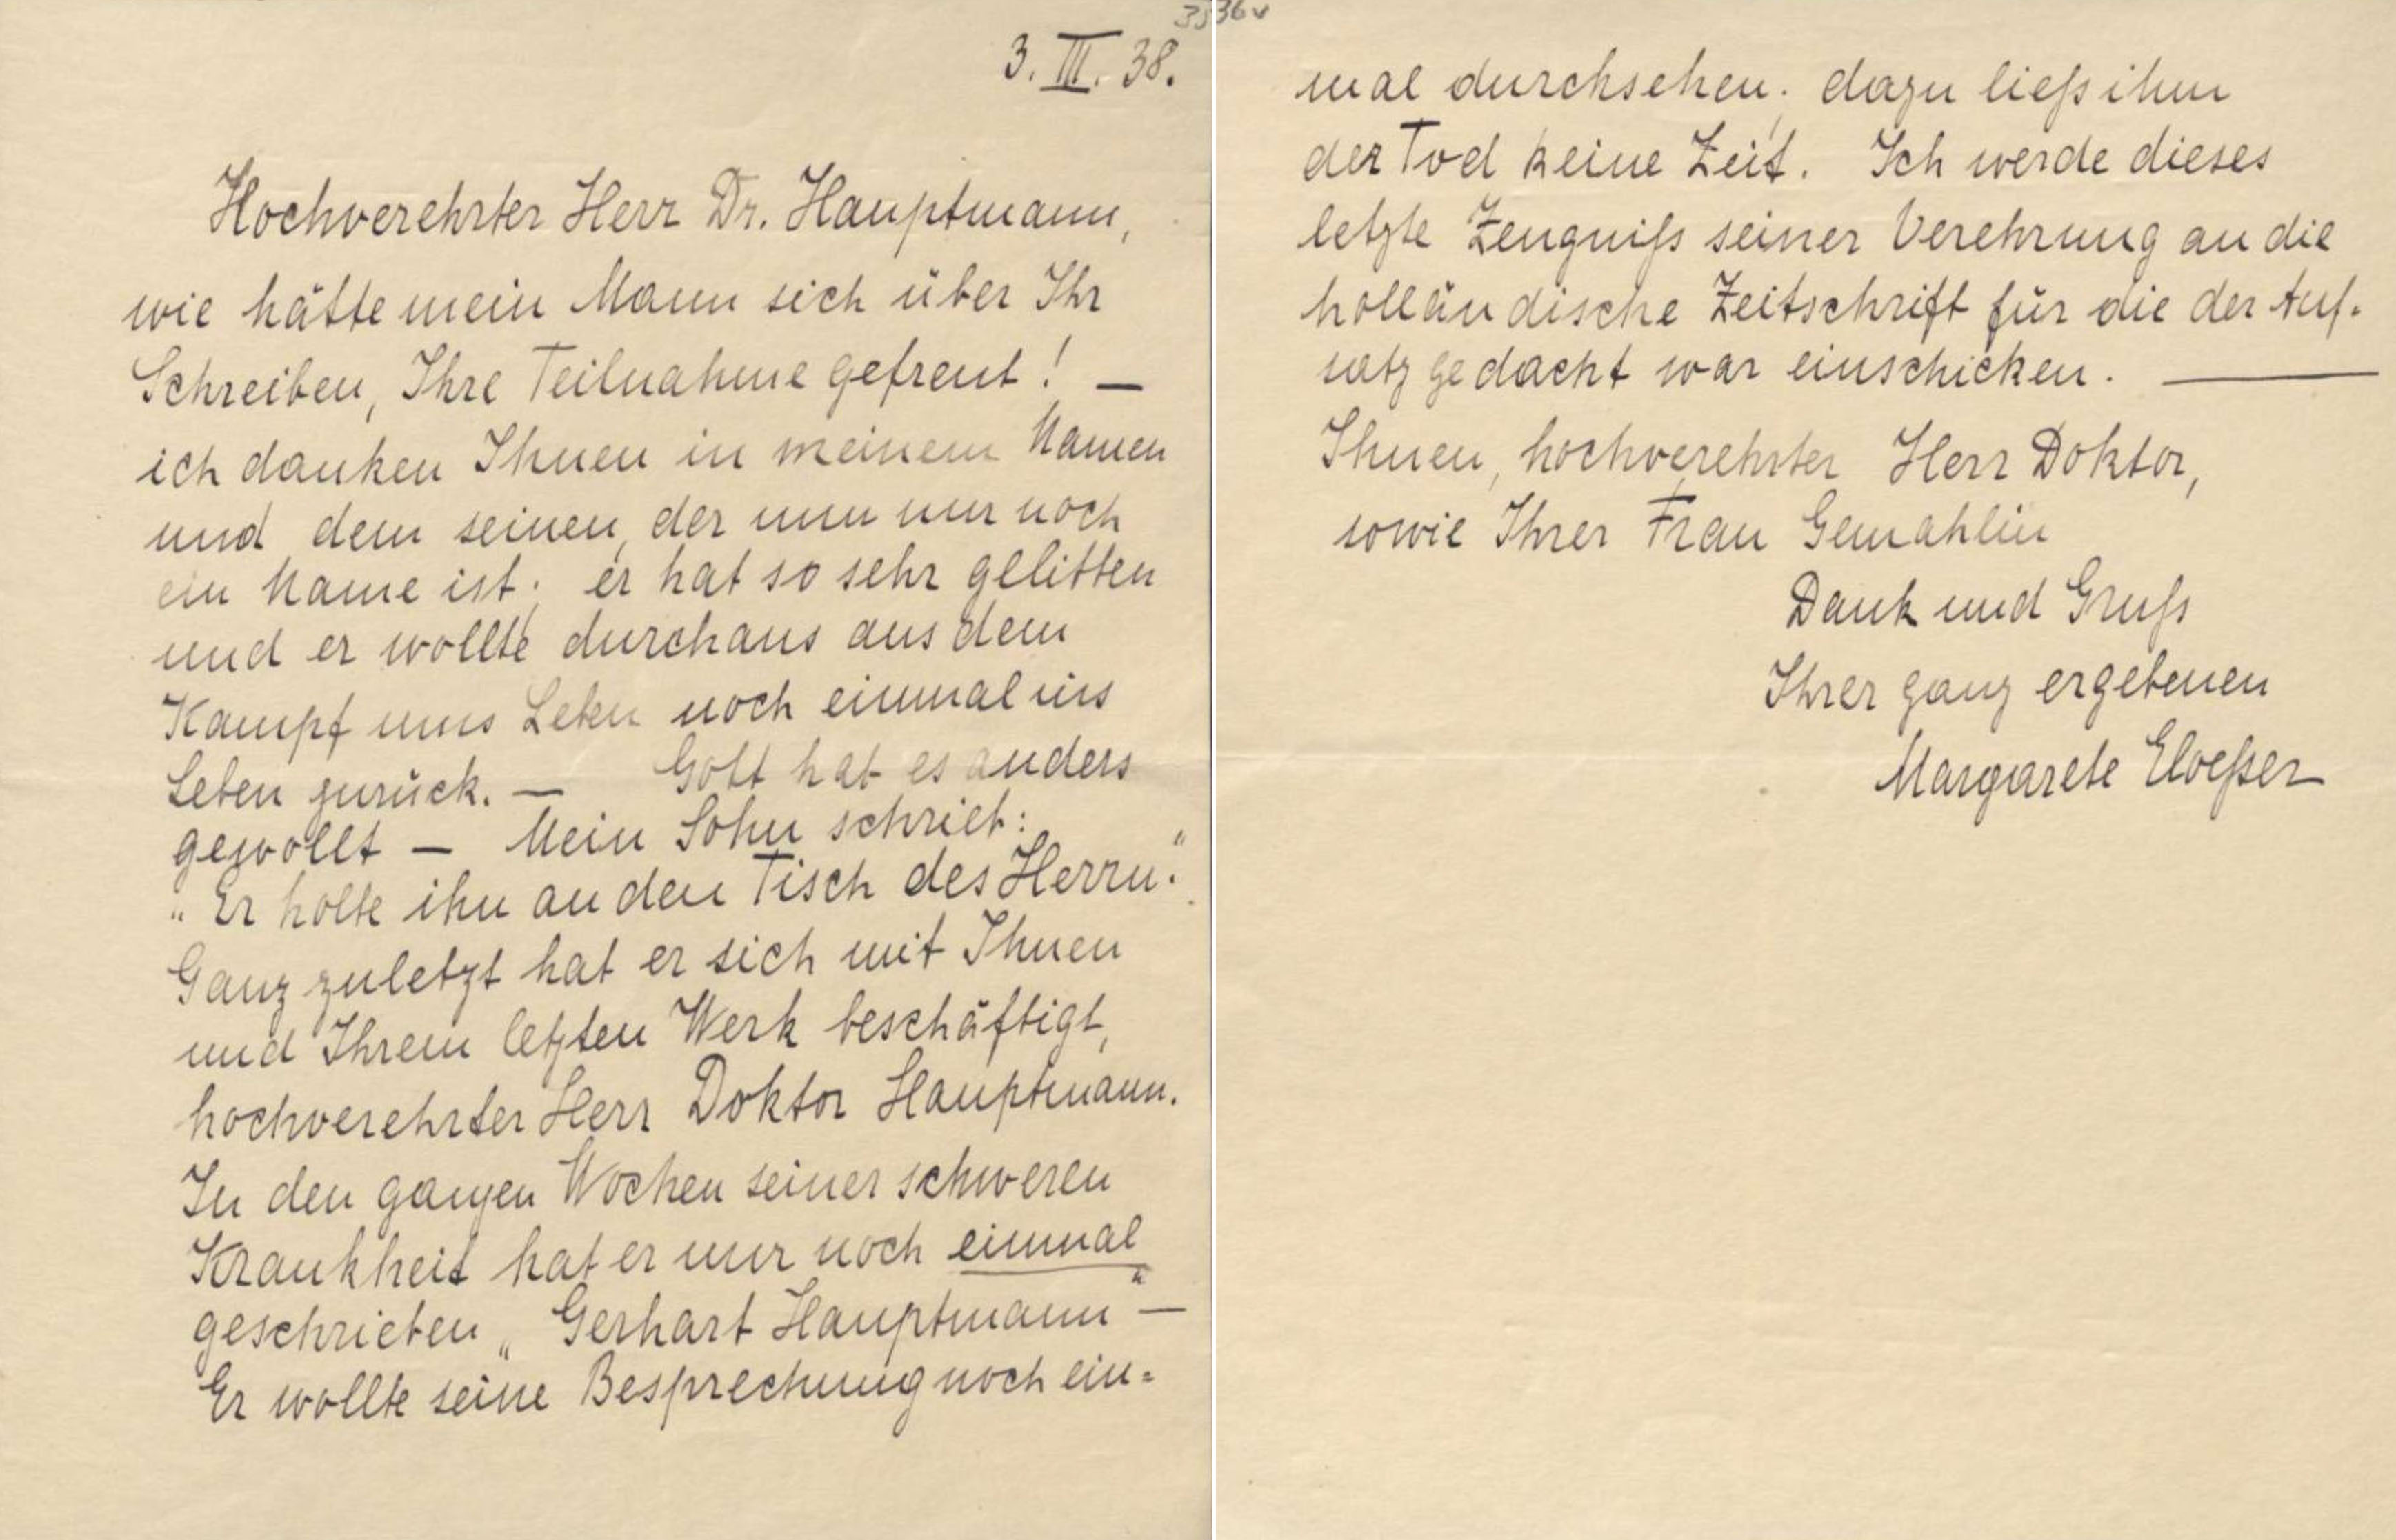 3. III. 38.
Hochverehrter Herr Dr. Hauptmann,
wie hätte mein Mann sich über Ihr
Schreiben, Ihre Teilnahme gefreut! —
ich danken Ihnen in meinem Namen
und dem seinen, der nun nur noch
ein Name ist; er hat so sehr gelitten
und er wollte durchaus aus dem
Kampf ums Leben noch einmal ins
Leben zurück. — Gott hat es anders
gewollt — Mein Sohn schrieb:
„Er holte ihn an den Tisch des Herrn."
Ganz zuletzt hat er sich mit Ihnen
und Ihrem letzten Werk beschäftigt,
hochverehrter Herr Doktor Hauptmann.
In den ganzen Wochen seiner schweren
Krankheit hat er nur noch einmal
geschrieben „Gerhart Hauptmann" —
Er wollte seine Besprechung noch ein=
3536v
mal durchsehen; dazu ließ ihm
der Tod keine Zeit. Ich werde dieses
letzte Zeugniß seiner Verehrung an die
holländische Zeitschrift für die der Auf-
satz gedacht war einschicken. —
Ihnen, hochverehrter Herr Doktor,
sowie Ihrer Frau Gemahlin
Dank und Gruß
Ihrer ganz ergebenen
Margarete Eloeßer